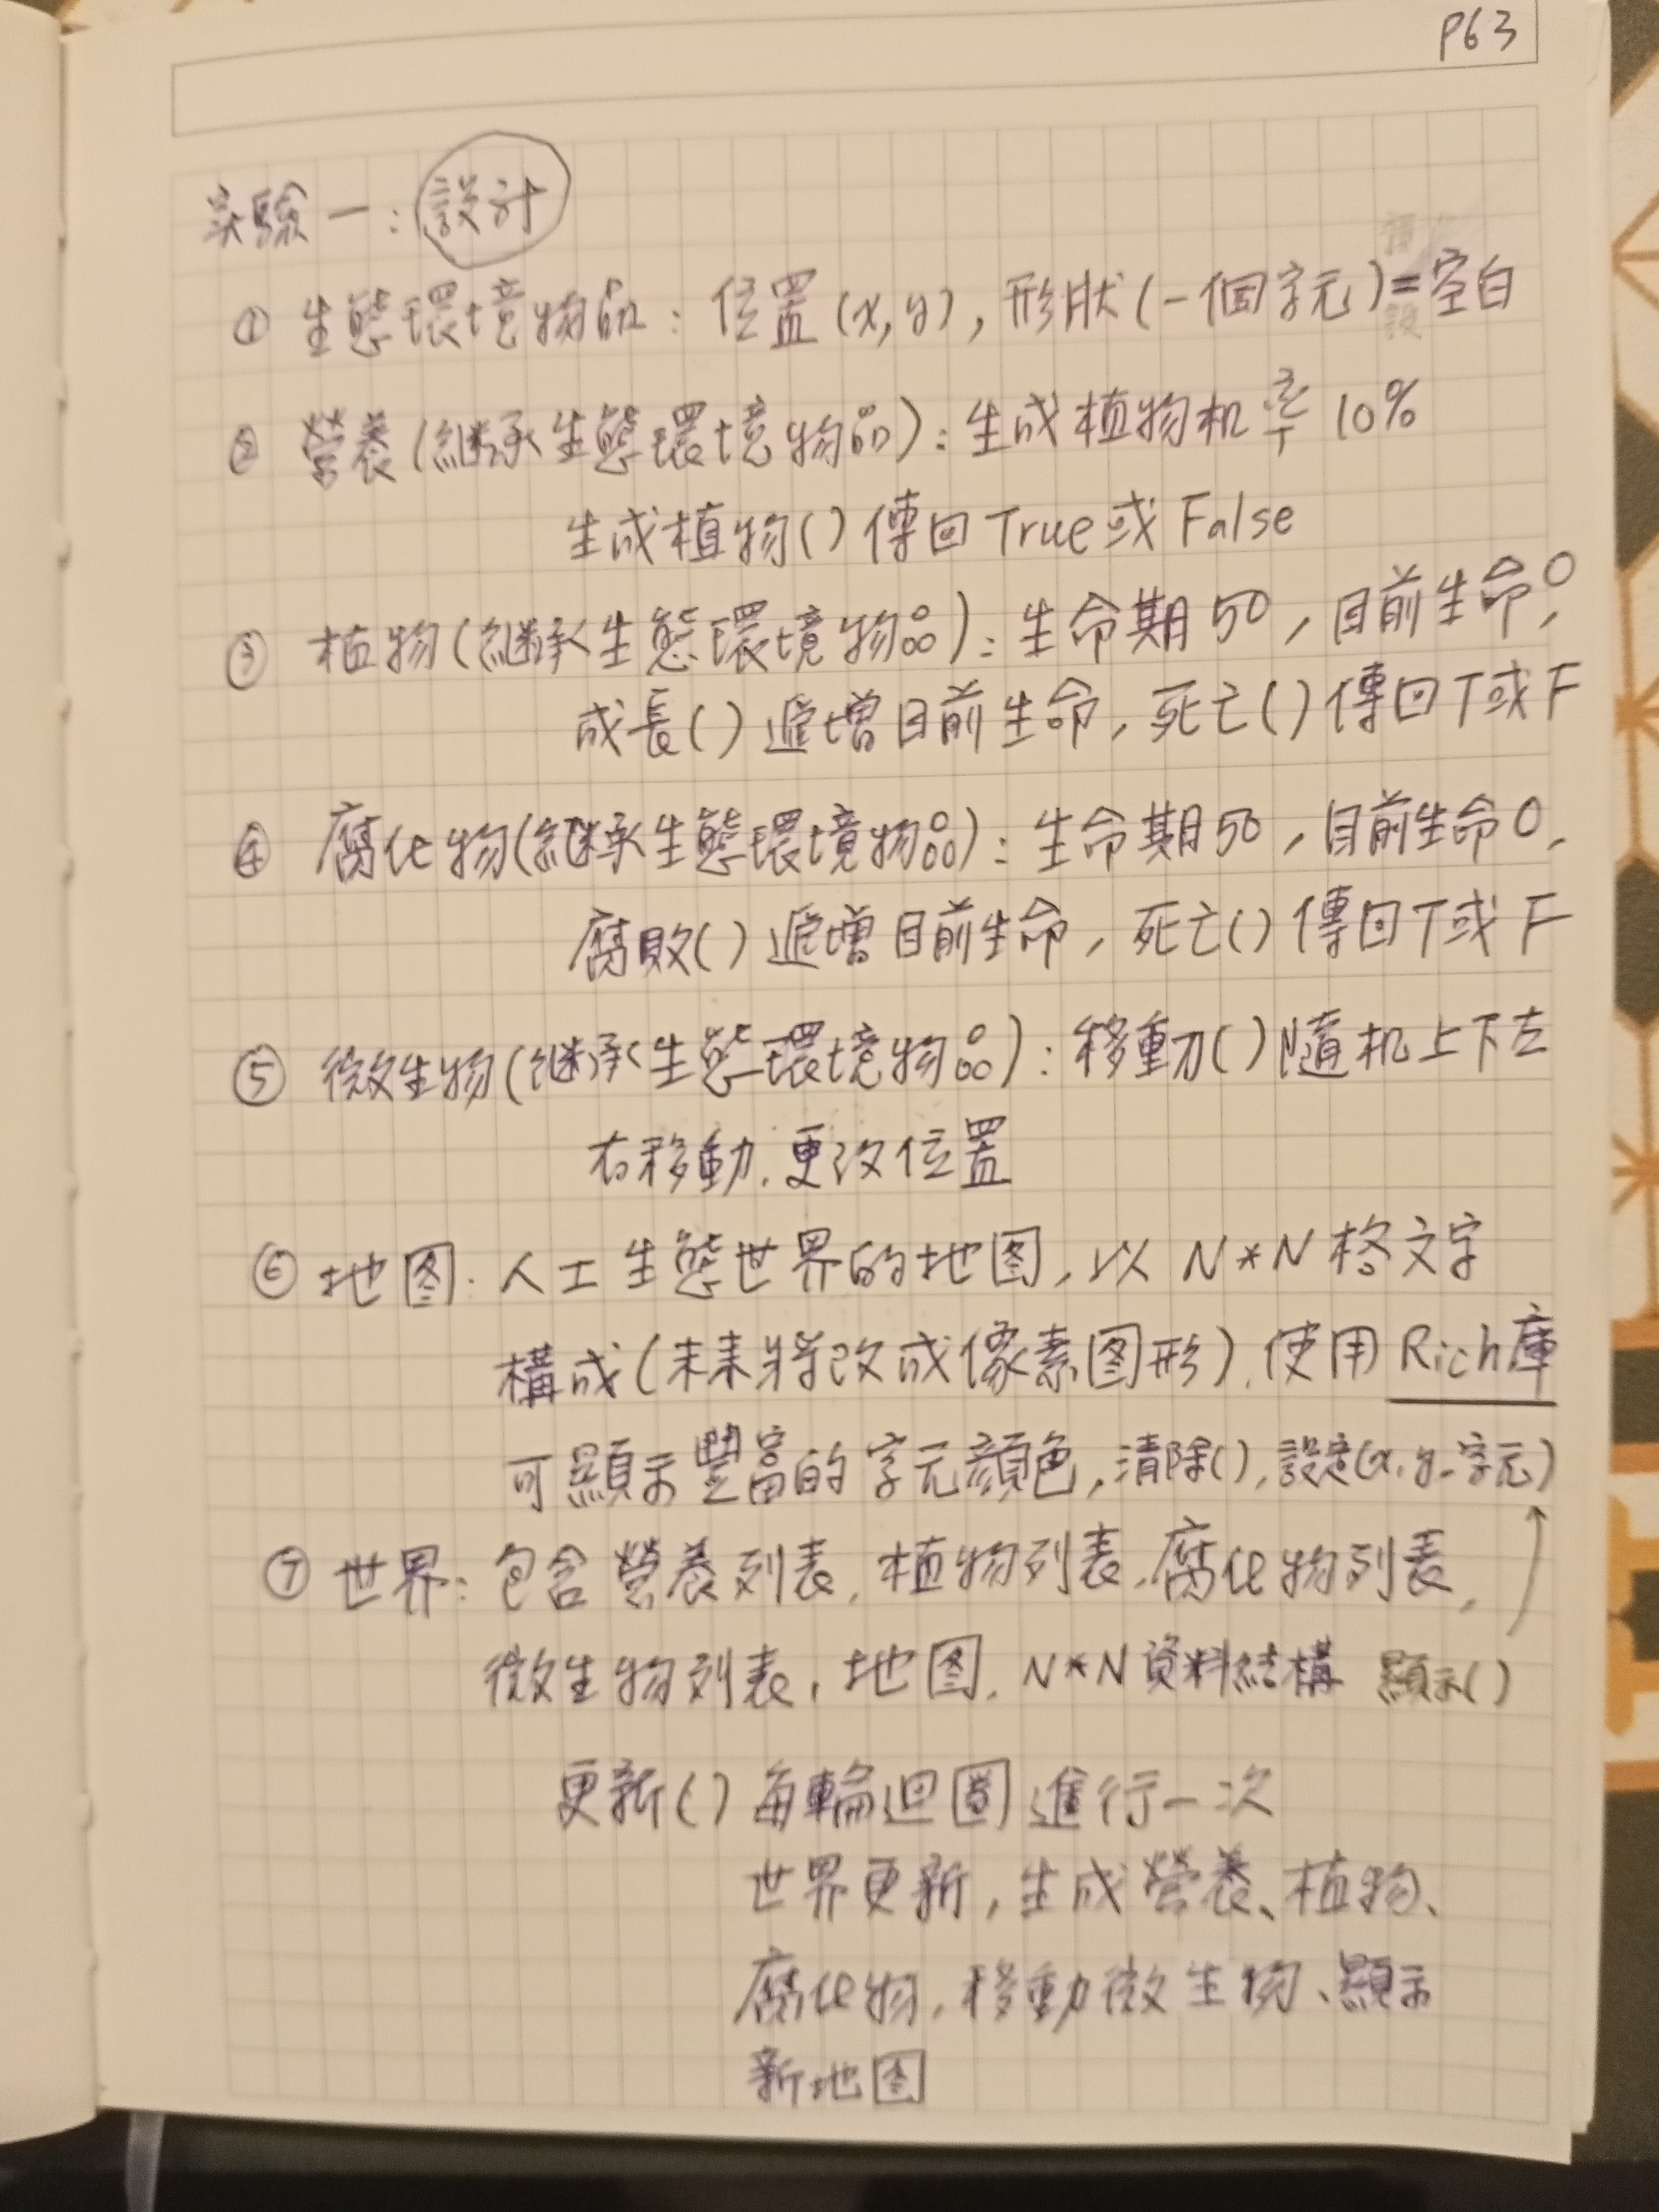 P63
實驗一:設計
① 生態環境物品:位置(x,y),形狀(一個字元)=空白
② 營養(繼承生態環境物品):生成植物机率10%
生成植物()傳回True或False
③ 植物(繼承生態環境物品):生命期50,目前生命0,
成長()遞增目前生命,死亡()傳回T或F
④ 腐化物(繼承生態環境物品):生命期50,目前生命0,
腐敗()遞增目前生命,死亡()傳回T或F
⑤ 微生物(繼承生態環境物品):移動()隨机上下左
右移動,更改位置
⑥ 地图:人工生態世界的地图,以N*N格文字
構成(未來將改成像素图形),使用Rich庫
可顯示豐富的字元顏色,清除(),設定(x,y,字元)
⑦ 世界:包含營養列表,植物列表,腐化物列表,
微生物列表,地图,N*N資料結構 顯示()
更新()每輪迴圈進行一次
世界更新,生成營養、植物、
腐化物,移動微生物、顯示
新地图